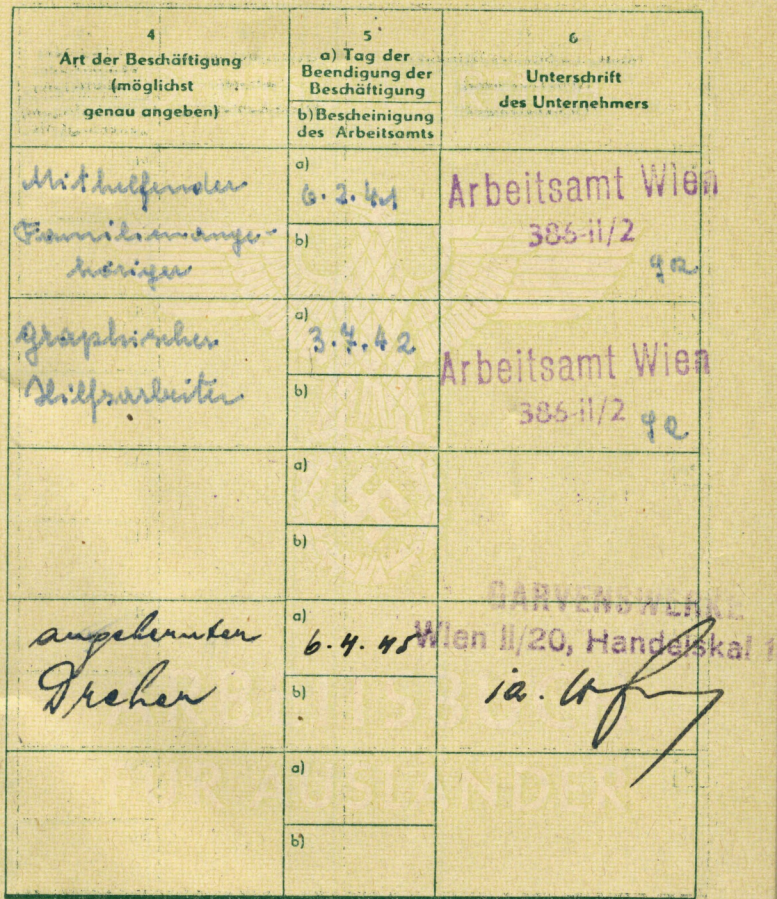 4
Art der Beschäftigung
(möglichst
genau angeben)
5
a) Tag der
Beendigung der
Beschäftigung
b) Bescheinigung
des Arbeitsamts
6
Unterschrift
des Unternehmers
Mithelfender
Familienange-
höriger
a)
6.2.41
b)
Arbeitsamt Wien
386-II/2
graphischer
Hilfsarbeiter
a)
3.7.42
b)
Arbeitsamt Wien
386-II/2
a)
b)
angelernter
Dreher
a)
6.4.45
b)
GARVENSWERKE
Wien II/20, Handelskai 1
ia.
a)
b)
ARBEITSBUCH
FÜR AUSLÄNDER